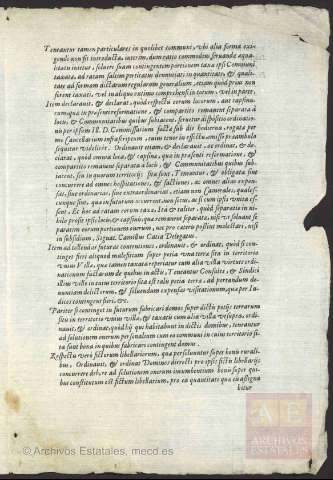 Teneantur tamen particulares in quolibet communi, vbi alia forma exi-
gendi non sit introducta, interim, dum certo commodius seruanda
soluere suam contingentem portionem taxæ ipsi Communi
taxatæ, ad ratam saltim portatam demonstratis in quantitate, & quali-
tate ad formam dictarum regularum generalium, etiam quod prius non
forent taxati, vel in aliquo extimo comprehensi in totum, vel in parte.
Item declarauit, & declarat, quod respectu eorum locorum, aut capsina-
rum quæ in præsenti reformatione, & compartito remanent separata à
locis, & Communitatibus quibus subiacent, seruetur dispositio ordinatio-
nis per ipsum Ill. D. Commissarium facta sub die hodierna, rogata per
me Cancellarium infrascriptum, cuius tenor in effectu omissis præambulis
sequitur videlicet. Ordinauit etiam, & declarauit, ac ordinat, & de-
clarat, quod omnia loca, & capsinæ, quæ in præsenti reformatione, &
compartito remanent separata à locis, & Communitatibus quibus sub-
iacent, seu in quorum territorijs sita sunt, Teneantur, & obligata sint
concurrere ad omnes hospitationes, & factiones, ac omnes alias expen-
sas, siue ordinarias, siue extraordinarias, etiam non Camerales, quales-
cunque sint, quæ in futurum occurrent, non secus, ac si cum ipsis vnita es-
sent, Et hoc ad ratam eorum taxæ, Ita & taliter, quod separata in ni-
hilo prosit ipsis locis, & capsinis, quæ remanent separata, nisi vt soluant se-
paratim eorum portionem eorum, nec pro cæteris possint molestari, nisi
in subsidium, Signat. Camillus Caita Delegatus.
Item ad tollendas futuras contentiones, ordinauit, & ordinat, quod si con-
tinget fieri aliquod maleficium super petia vna terræ sita in territorio
vnius Villæ, quæ tamen taxata reperiatur cum alia villa virtute ordi-
nationum factarum de quibus in actis, Teneantur Consules, & Sindici
illius villæ in cuius territorio sita est talis petia terræ ad portandum de-
nuntiam delictorum, & soluendum expensas visitationum, quæ per Iu-
dices contingent fieri, &c.
Pariter si continget in futurum fabricari domos super dictis petijs terrarum
sitis in territorio vnius villæ, & taxatis cum alia villa vt supra, ordi-
nauit, & ordinat, quod hi qui habitabunt in dictis domibus, teneantur
ad solutionem onerum personalium cum ea communi in cuius territorio si-
ta sunt bona in quibus fabricari contingent domus.
Respectu vero fictorum libellariorum, quæ persoluuntur super bonis rurali-
bus, Ordinauit, & ordinat Dominos directos pro ipsis fictis libellarijs
concurrere debere ad solutionem onerum incumbentium bonis super qui-
bus constitutum est fictum libellarium, pro ea quantitate quæ eis assigna
bitur
ARCHIVOS
ESTATALES
© Archivos Estatales, mecd.es